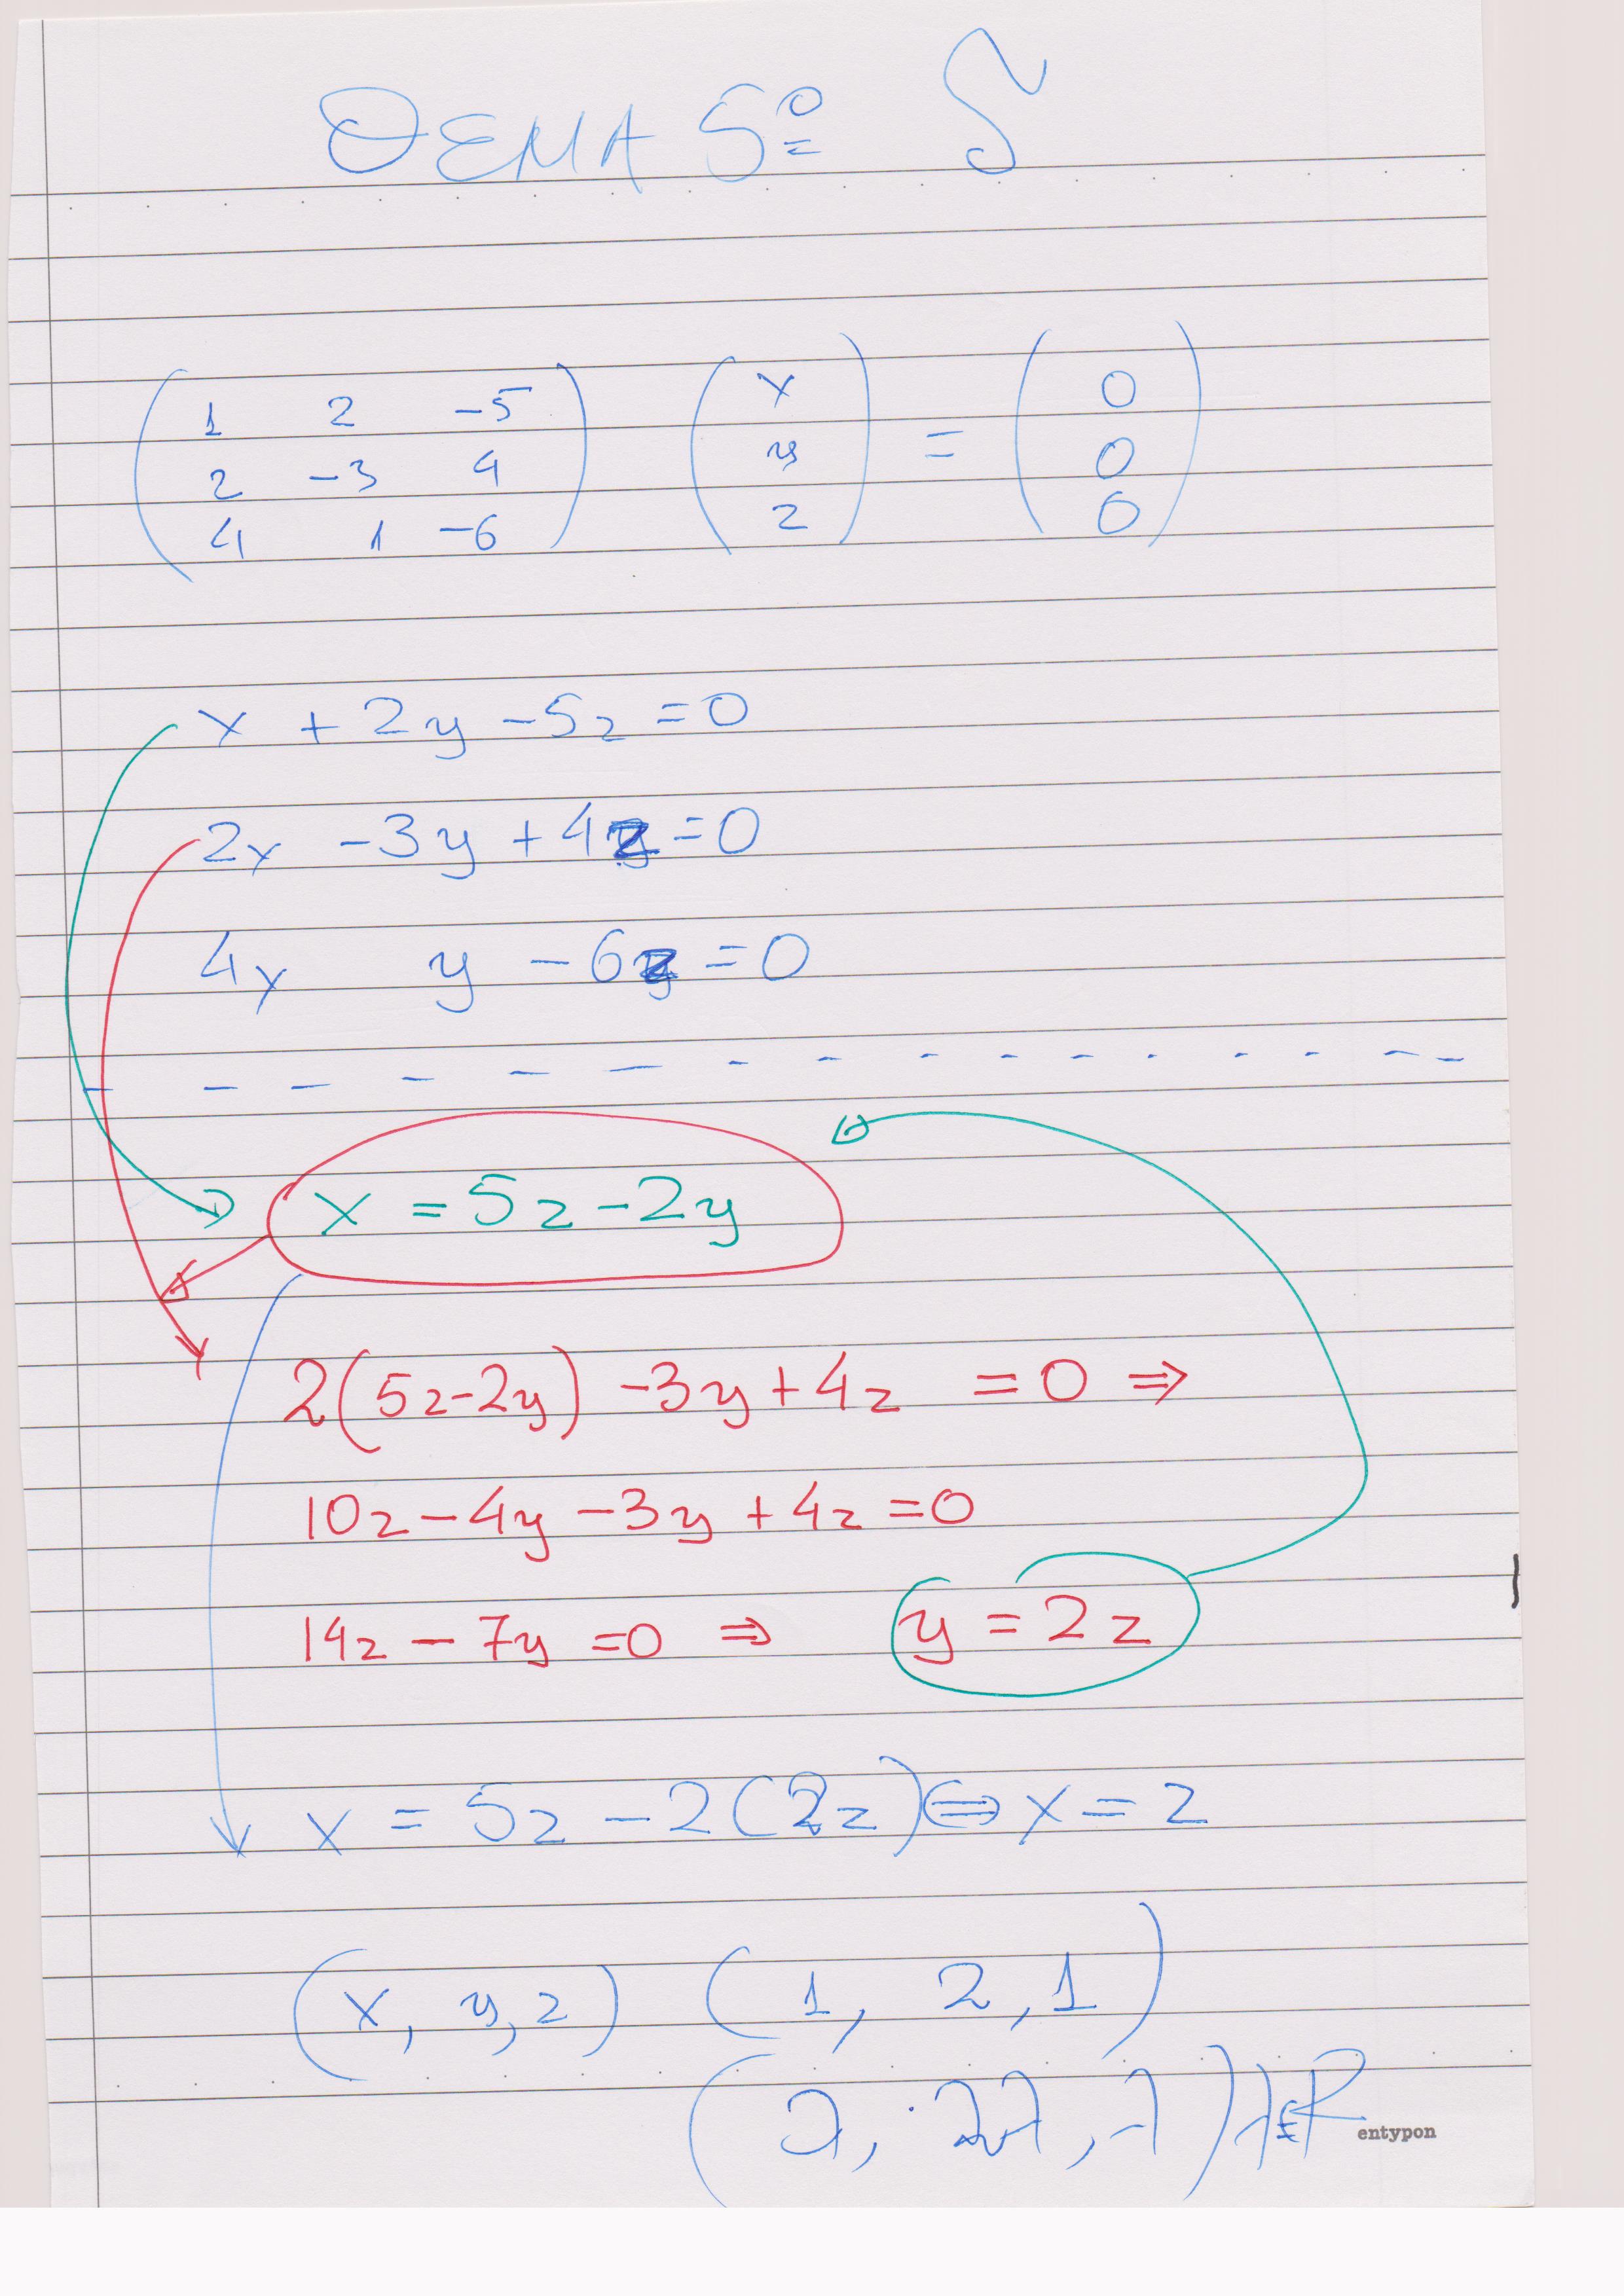 ΘΕΜΑ 5º
1 2 -5
2 -3 4
4 1 -6
x
y
z
=
0
0
0
x + 2y - 5z = 0
2x - 3y + 4z = 0
4x y - 6z = 0
x = 5z - 2y
2(5z-2y) - 3y + 4z = 0 ⇒
10z - 4y - 3y + 4z = 0
14z - 7y = 0 ⇒ y = 2z
x = 5z - 2(2z) ⇔ x = z
(x, y, z) (1, 2, 1)
(λ, 2λ, λ) λ∈R
entypon